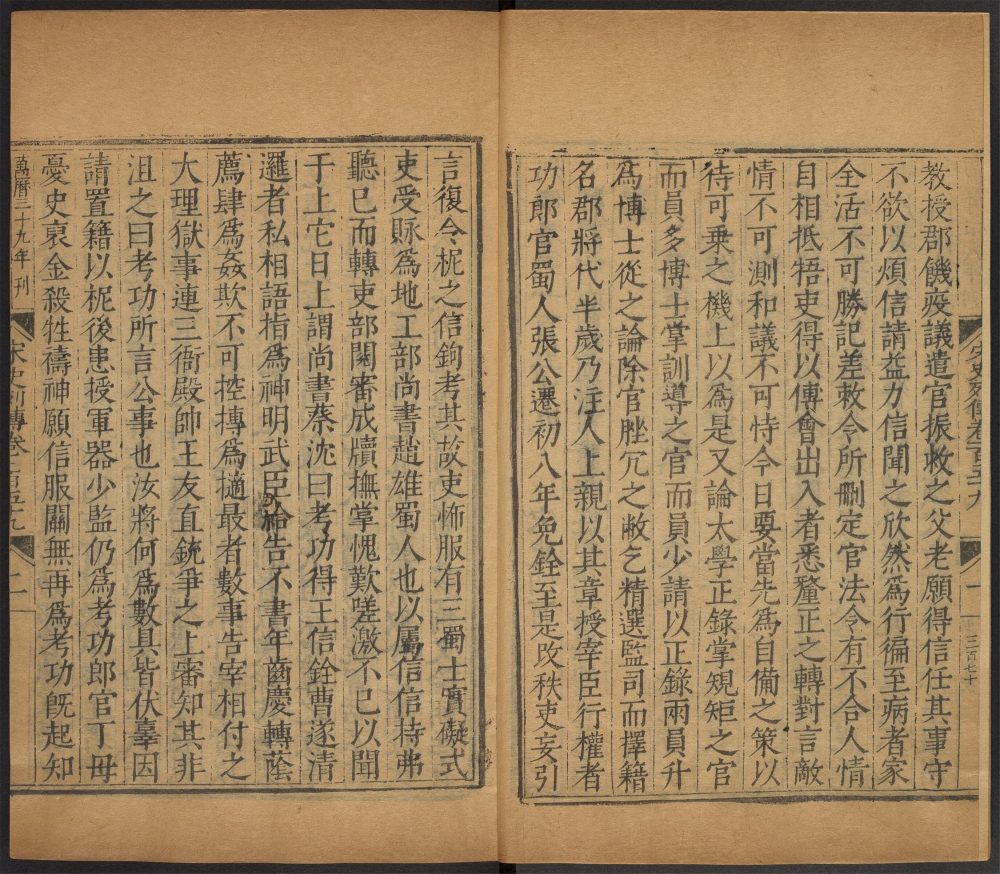 教授郡饑疫議遣官振救之父老願得信任其事守
不欲以煩信請益力信聞之欣然爲行徧至病者家
全活不可勝記差敕令所刪定官法令有不合人情
自相抵牾吏得以傳會出入者悉釐正之轉對言敵
情不可測和議不可恃今日要當先爲自備之策以
待可乗之機上以爲是又論太學正錄掌規矩之官
而員多博士掌訓導之官而員少請以正錄兩員升
爲博士從之論除官脞冗之敝乞精選監司而擇籍
名郡將代半歲乃注人上親以其章授宰臣行權者
功郎官蜀人張公遷初八年免銓至是改秩吏妄引
宋史列傳卷一百五十九
一
三百七十
言復令柅之信鉤考其故吏怖服有三蜀士實礙式
吏受賕爲地工部尚書趙雄蜀人也以屬信信持弗
聽已而轉吏部閱審成牘撫掌愧歎嗟激不已以聞
于上它日上謂尚書蔡沇曰考功得王信銓曹遂清
邏者私相語指爲神明武臣給告不書年齒慶轉蔭
薦肆爲姦欺不可控搏爲擿最者數事告宰相付之
大理獄事連三衙殿帥王友直銃爭之上審知其非
沮之曰考功所言公事也汝將何爲數具皆伏辜因
請置籍以柅後患授軍器少監仍爲考功郎官丁母
憂史裒金殺牲禱神願信服闋無再爲考功旣起知
萬曆二十九年刊
宋史列傳卷一百五十九
二